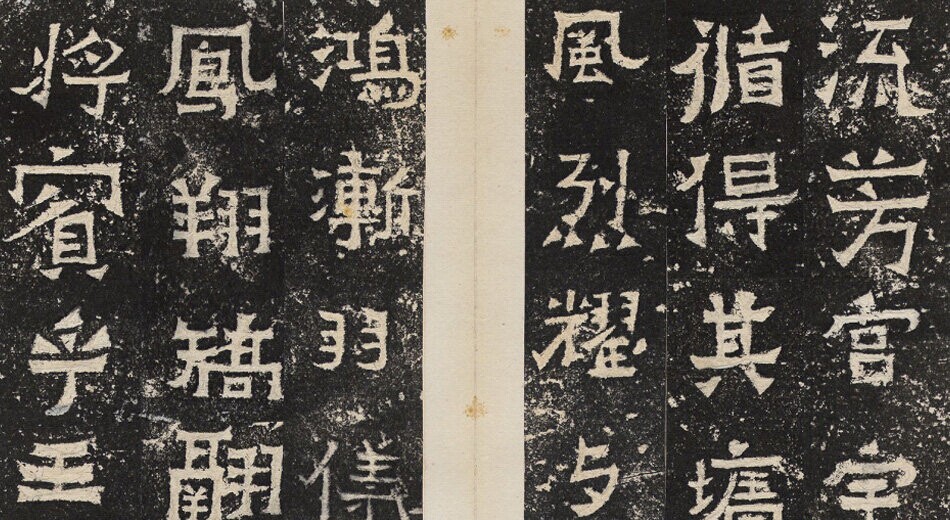 流芳宮宇
循得其墻
風烈耀与
鴻漸羽儀
鳳翔矯翮
將賓乎王